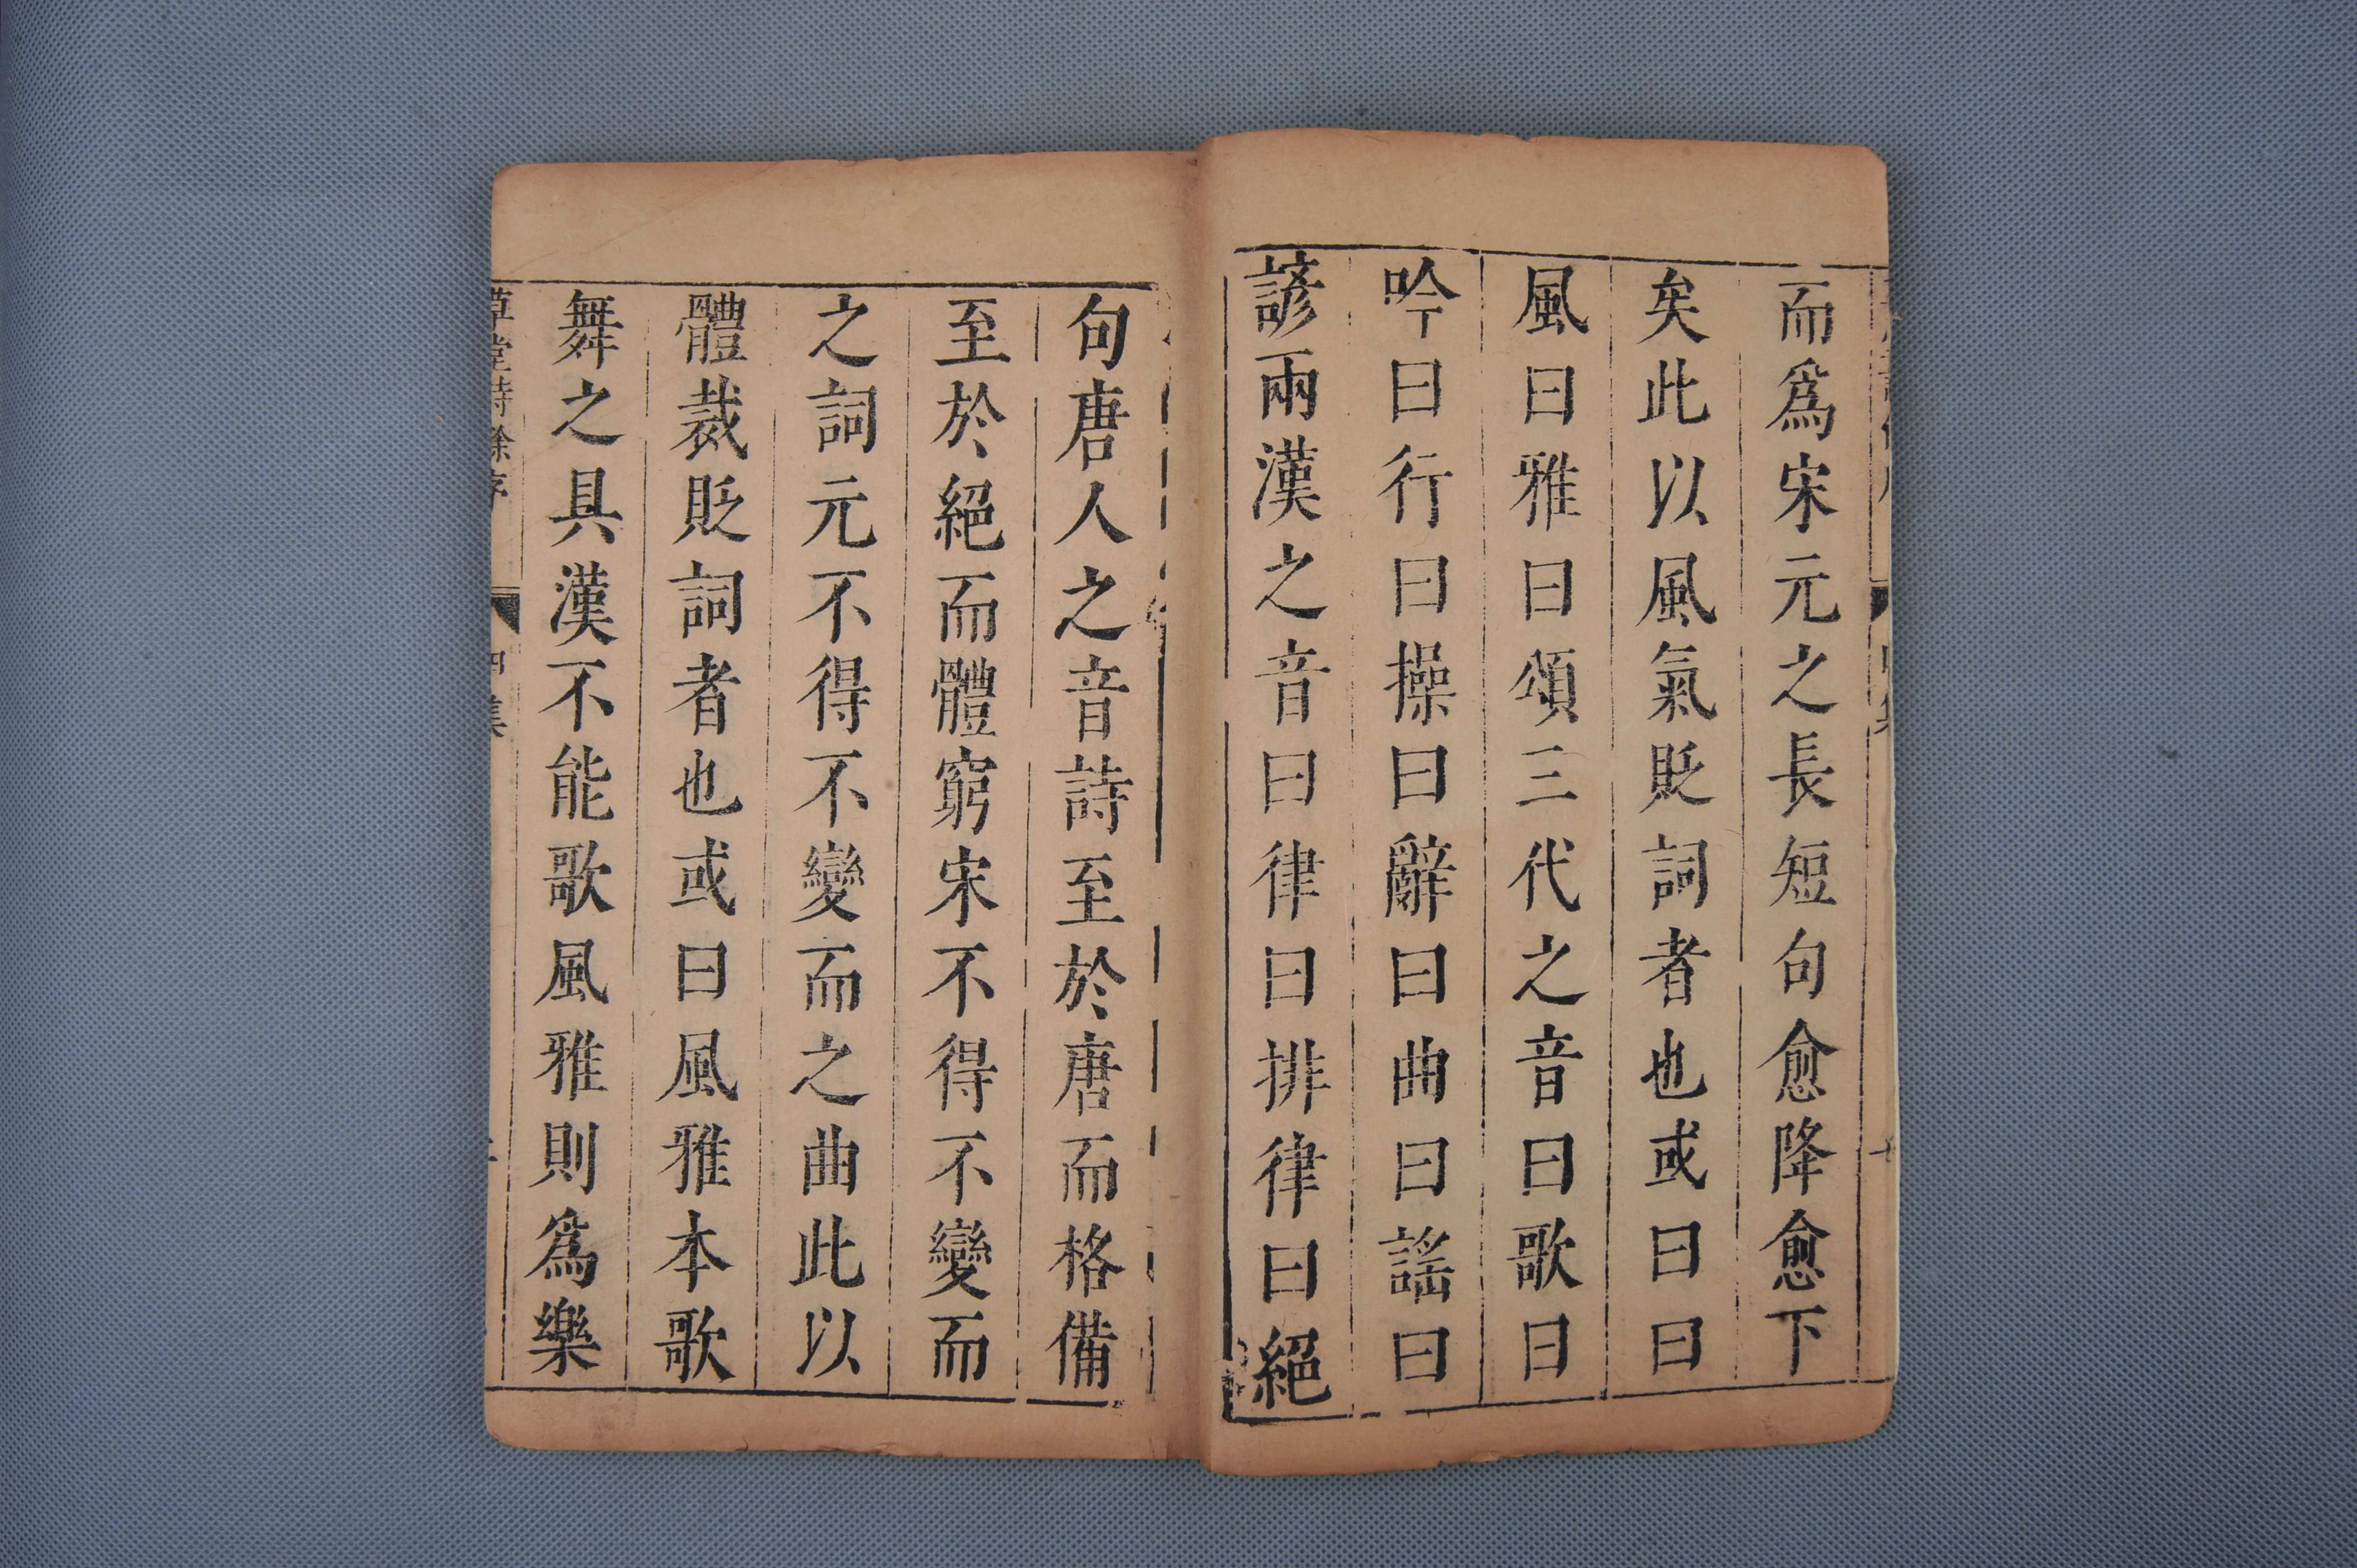 而爲宋元之長短句愈降愈下
矣此以風氣貶詞者也或曰曰
風曰雅曰頌三代之音曰歌曰
吟曰行曰操曰辭曰曲曰謠曰
諺兩漢之音曰律曰排律曰絕
句唐人之音詩至於唐而格備
至於絕而體窮宋不得不變而
之詞元不得不變而之曲此以
體裁貶詞者也或曰風雅本歌
舞之具漢不能歌風雅則爲樂
草堂詩餘序 四集